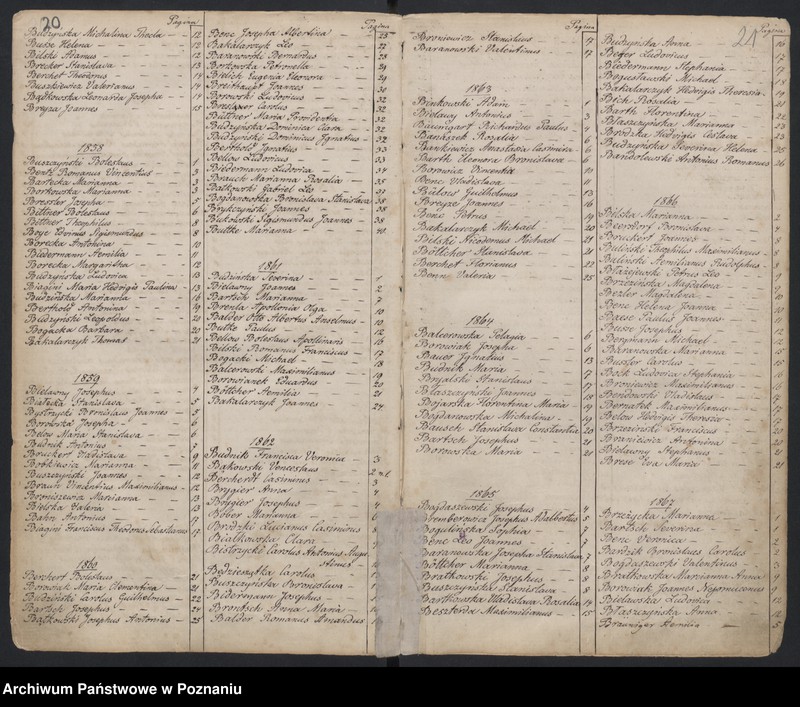 20
Pagina
Budzyńska Michalina Thecla - 12
Busse Helena - 12
Bilski Adamus - 12
Brecker Stanislava - 13
Berchet Theodorus - 14
Buszkiewicz Valerianus - 14
Bątkowska Leonarda Josepha - 14
Breyza Joannes - 15
1858
Buszczyński Boleslaus - 1
Bentz Romanus Vincentius - 3
Bartecka Marianna - 3
Bortkowska Marianna - 3
Bressler Josepha - 5
Bittner Boleslaus - 6
Bittner Theophilus - 8
Boye Edvinus Sigismundus - 8
Borecka Antonina - 10
Biedermann Aemilia - 11
Borecka Margaritha - 12
Budzyńska Ludovica - 13
Biagini Maria Hedvigis Paulina - 13
Budzińska Marianna - 16
Berthold Antonina - 19
Budzyński Leopoldus - 22
Bogacka Barbara - 20
Bakalarczyk Thomas - 21
1859
Bielawny Josephus - 4
Białecka Stanislava - 5
Bystrycki Bronislaus Joannes - 5
Borowska Josepha - 6
Below Maria Stanislava - 6
Budnik Antonius - 7
Bruckert Vladislava - 9
Bobkiewicz Marianna - 11
Buszczyński Joannes - 12
Brauch Vincentius Maximilianus - 12
Broniszewicz Marianna - 13
Bielska Valeria - 13
Bahn Antonius - 17
Biagini Franciscus Theodorus Sebastianus - 17
1860
Berchert Boleslaus - 21
Borowiak Maria Clementina - 21
Budziński Carolus Guilhelmus - 22
Bartsch Josephus - 24
Bątkowski Josephus Antonius - 25
Pagina
Benc Josepha Albertina - 25
Bakalarczyk Leo - 27
Baranowski Bernardus - 28
Bortkowska Petronella - 29
Bitlich Eugenia Eleonora - 29
Breithaupt Joannes - 30
Borowski Ludovicus - 32
Bretzloper Carolus - 32
Büttner Maria Providentia - 32
Budzyńska Dominica Clara - 32
Budzyński Dominicus Ignatius - 32
Berthold Ignatius - 33
Below Ludovicus - 33
Biedermann Ludovica - 34
Brauch Marianna Rosalia - 35
Bątkowski Gabriel Leo - 37
Bogdanowska Bronislava Stanislava - 38
Brykczyński Joannes - 38
Bukowski Sigismundus Joannes - 38
Buttke Marianna - 40
1861
Budzińska Severina - 1
Bielawny Joannes - 2
Bartsch Marianna - 7
Brenla Apollonia Olga - 10
Balder Otto Albertus Anselmus - 10
Butke Paulus - 12
Below Boleslaus Apollinaris - 16
Bilski Romanus Franciscus - 17
Bogacki Michael - 18
Balcerowski Maximilianus - 19
Borowianek Eduardus - 20
Böttcher Aemilia - 21
Bakalarczyk Joannes - 24
1862
Budnik Francisca Veronica - 3
Bąkowski Venceslaus
Berchert Casimirus - 3
Brygier Anna - 4
Brygier Josephus - 4
Bober Marianna - 6
Brodzki Lucianus Casimirus
Białkowska Clara
Bistrzycki Carolus Antonius Augustinus
Będzieszka Carolus
Buszczyńska Bronislava
Biderman Josephus
Brontsch Anna Maria
Balder Romanus Amandus
Pagina
Broniewicz Stanislaus - 7
Baranowski Valentinus - 7
1863
Binkowski Adam
Bielawy Antonius - 3
Baumgart Richardus Paulus - 4
Banaszek Rosalia - 6
Bankiewicz Anastasia Casimira - 6
Barth Eleonora Bronislava - 6
Borowicz Vincentia - 10
Benc Vladislava - 11
Bielow Guilhelmus - 13
Breyze Joannes - 16
Benc Petrus
Bakalarczyk Michael - 20
Bilski Nicodemus Michael - 21
Böttcher Stanislava - 21
Berchet Florianus - 22
Benn Valeria - 25
1864
Balcerowska Pelagia - 6
Borowiak Josepha - 6
Bauer Ignatius - 13
Budnik Maria - 7
Bryalski Stanislaus - 17
Błaszczyński Joannes - 18
Bojarska Florentina Maria - 19
Bogdanowska Michalina - 19
Bausch Stanislava Constantia - 20
Bartsch Josephus - 21
Borowska Maria - 21
1865
Bogdaszewski Josephus - 4
Bremberowicz Josephus Adalbertus - 5
Bogulińska Sophia - 5
Benc Leo Joannes - 7
Baranowska Josepha Stanislava - 7
Böttcher Marianna - 8
Bratkowski Josephus - 8
Buszczyńska Stanislava - 8
Bartkowska Vladislava Rosalia - 14
Beszterda Maximilianus - 15
24
Pagina
Budzyńska Anna - 16
Beger Ludovicus - 17
Biedermann Stephania - 17
Bogusławski Michael - 18
Bakalarczyk Hedvigis Theresia - 14
Bich Rosalia - 21
Barth Florentina - 22
Błaszczyńska Marianna - 23
Brodzka Hedvigis Ceslava - 23
Budzyńska Severina Helena - 25
Bandolewski Antonius Romanus - 26
1866
Bilska Marianna - 2
Beersdorf Bronislava - 4
Bruckert Joannes - 8
Buliński Theophilus Maximilianus - 8
Baliński Aemilianus Rudolphus - 8
Błażejewski Petrus Leo - 8
Brzezińska Magdalena - 9
Bezler Magdalena - 10
Benc Helena Joanna - 10
Baese Paulus Joannes - 11
Busse Josephus - 12
Bergmann Michael - 12
Baranowska Marianna - 15
Bussler Carolus - 15
Bock Ludovica Stephania - 15
Broniewicz Maximilianus - 16
Bendowski Vladislaus - 17
Bernatek Maximilianus - 17
Below Hedvigis Theresia - 17
Brzeziński Franciscus - 20
Braniewicz Antonina - 20
Bielawny Stephanus - 21
Brese Eva Maria - 21
1867
Brzezycka Marianna - 1
Bartsch Severina - 1
Benc Veronica - 2
Berdzik Bronislaus Carolus - 2
Bogdaszewski Valentinus - 3
Bratkowska Marianna Anna - 9
Borowiak Joannes Nepomucenus - 9
Bielawska Ludovica - 11
Błaszczyńska Anna - 12
Braeuniger Aemilia - 5
Archiwum Państwowe w Poznaniu